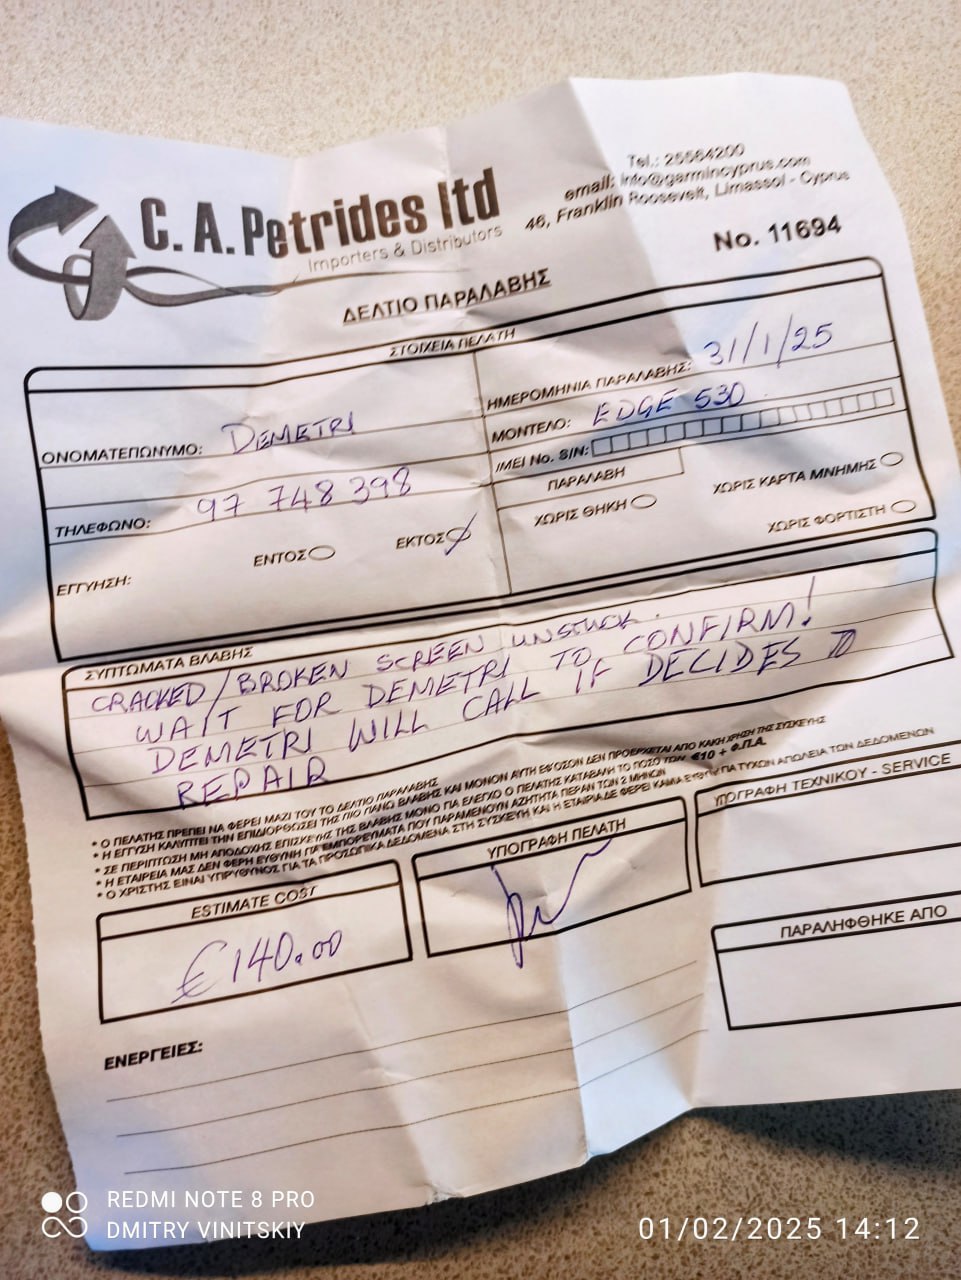 C. A. Petrides ltd
Importers & Distributors
Tel.: 25564200
email: info@garmincyprus.com
46, Franklin Roosevelt, Limassol - Cyprus
No. 11694
ΔΕΛΤΙΟ ΠΑΡΑΛΑΒΗΣ
ΣΤΟΙΧΕΙΑ ΠΕΛΑΤΗ
ΟΝΟΜΑΤΕΠΩΝΥΜΟ: DEMETRI
ΤΗΛΕΦΩΝΟ: 97 748 398
ΕΓΓΥΗΣΗ: ΕΝΤΟΣ ΕΚΤΟΣ
ΗΜΕΡΟΜΗΝΙΑ ΠΑΡΑΛΑΒΗΣ: 31/1/25
ΜΟΝΤΕΛΟ: EDGE 530
IMEI No. S/N:
ΠΑΡΑΛΑΒΗ
ΧΩΡΙΣ ΘΗΚΗ ΧΩΡΙΣ ΚΑΡΤΑ ΜΝΗΜΗΣ
ΧΩΡΙΣ ΦΟΡΤΙΣΤΗ
ΣΥΠΤΩΜΑΤΑ ΒΛΑΒΗΣ
CRACKED/BROKEN SCREEN UNSTUCK.
WAIT FOR DEMETRI TO CONFIRM!
DEMETRI WILL CALL IF DECIDES TO
REPAIR
* Ο ΠΕΛΑΤΗΣ ΠΡΕΠΕΙ ΝΑ ΦΕΡΕΙ ΜΑΖΙ ΤΟΥ ΤΟ ΔΕΛΤΙΟ ΠΑΡΑΛΑΒΗΣ
* Η ΕΓΓΥΣΗ ΚΑΛΥΠΤΕΙ ΤΗΝ ΕΠΙΔΙΟΡΘΩΣΗ ΤΗΣ ΠΙΟ ΠΑΝΩ ΒΛΑΒΗΣ ΚΑΙ ΜΟΝΟΝ ΑΥΤΗ ΕΦΟΣΟΝ ΔΕΝ ΠΡΟΕΡΧΕΤΑΙ ΑΠΟ ΚΑΚΗ ΧΡΗΣΗ ΤΗΣ ΣΥΣΚΕΥΗΣ
* ΣΕ ΠΕΡΙΠΤΩΣΗ ΜΗ ΑΠΟΔΟΧΗΣ ΕΠΙΣΚΕΥΗΣ ΤΗΣ ΒΛΑΒΗΣ ΜΟΝΟ ΓΙΑ ΕΛΕΓΧΟ Ο ΠΕΛΑΤΗΣ ΚΑΤΑΒΑΛΕΙ ΤΟ ΠΟΣΟ ΤΩΝ €10 + Φ.Π.Α.
* Η ΕΤΑΙΡΕΙΑ ΜΑΣ ΔΕΝ ΦΕΡΗ ΕΥΘΥΝΗ ΓΙΑ ΕΜΠΟΡΕΥΜΑΤΑ ΠΟΥ ΠΑΡΑΜΕΝΟΥΝ ΑΖΗΤΗΤΑ ΠΕΡΑΝ ΤΩΝ 2 ΜΗΝΩΝ
* Ο ΧΡΙΣΤΗΣ ΕΙΝΑΙ ΥΠΡΥΘΥΝΟΣ ΓΙΑ ΤΑ ΠΡΟΣΩΠΙΚΑ ΔΕΔΟΜΕΝΑ ΣΤΗ ΣΥΣΚΕΥΗ ΚΑΙ Η ΕΤΑΙΡΙΑ ΔΕ ΦΕΡΕΙ ΚΑΜΙΑ ΕΥΘΥΝΗ ΓΙΑ ΤΥΧΟΝ ΑΠΩΛΕΙΑ ΤΩΝ ΔΕΔΟΜΕΝΩΝ
ESTIMATE COST
€140.00
ΥΠΟΓΡΑΦΗ ΠΕΛΑΤΗ
ΥΠΟΓΡΑΦΗ ΤΕΧΝΙΚΟΥ - SERVICE
ΠΑΡΑΛΗΦΘΗΚΕ ΑΠΟ
ΕΝΕΡΓΕΙΕΣ:
REDMI NOTE 8 PRO
DMITRY VINITSKIY
01/02/2025 14:12